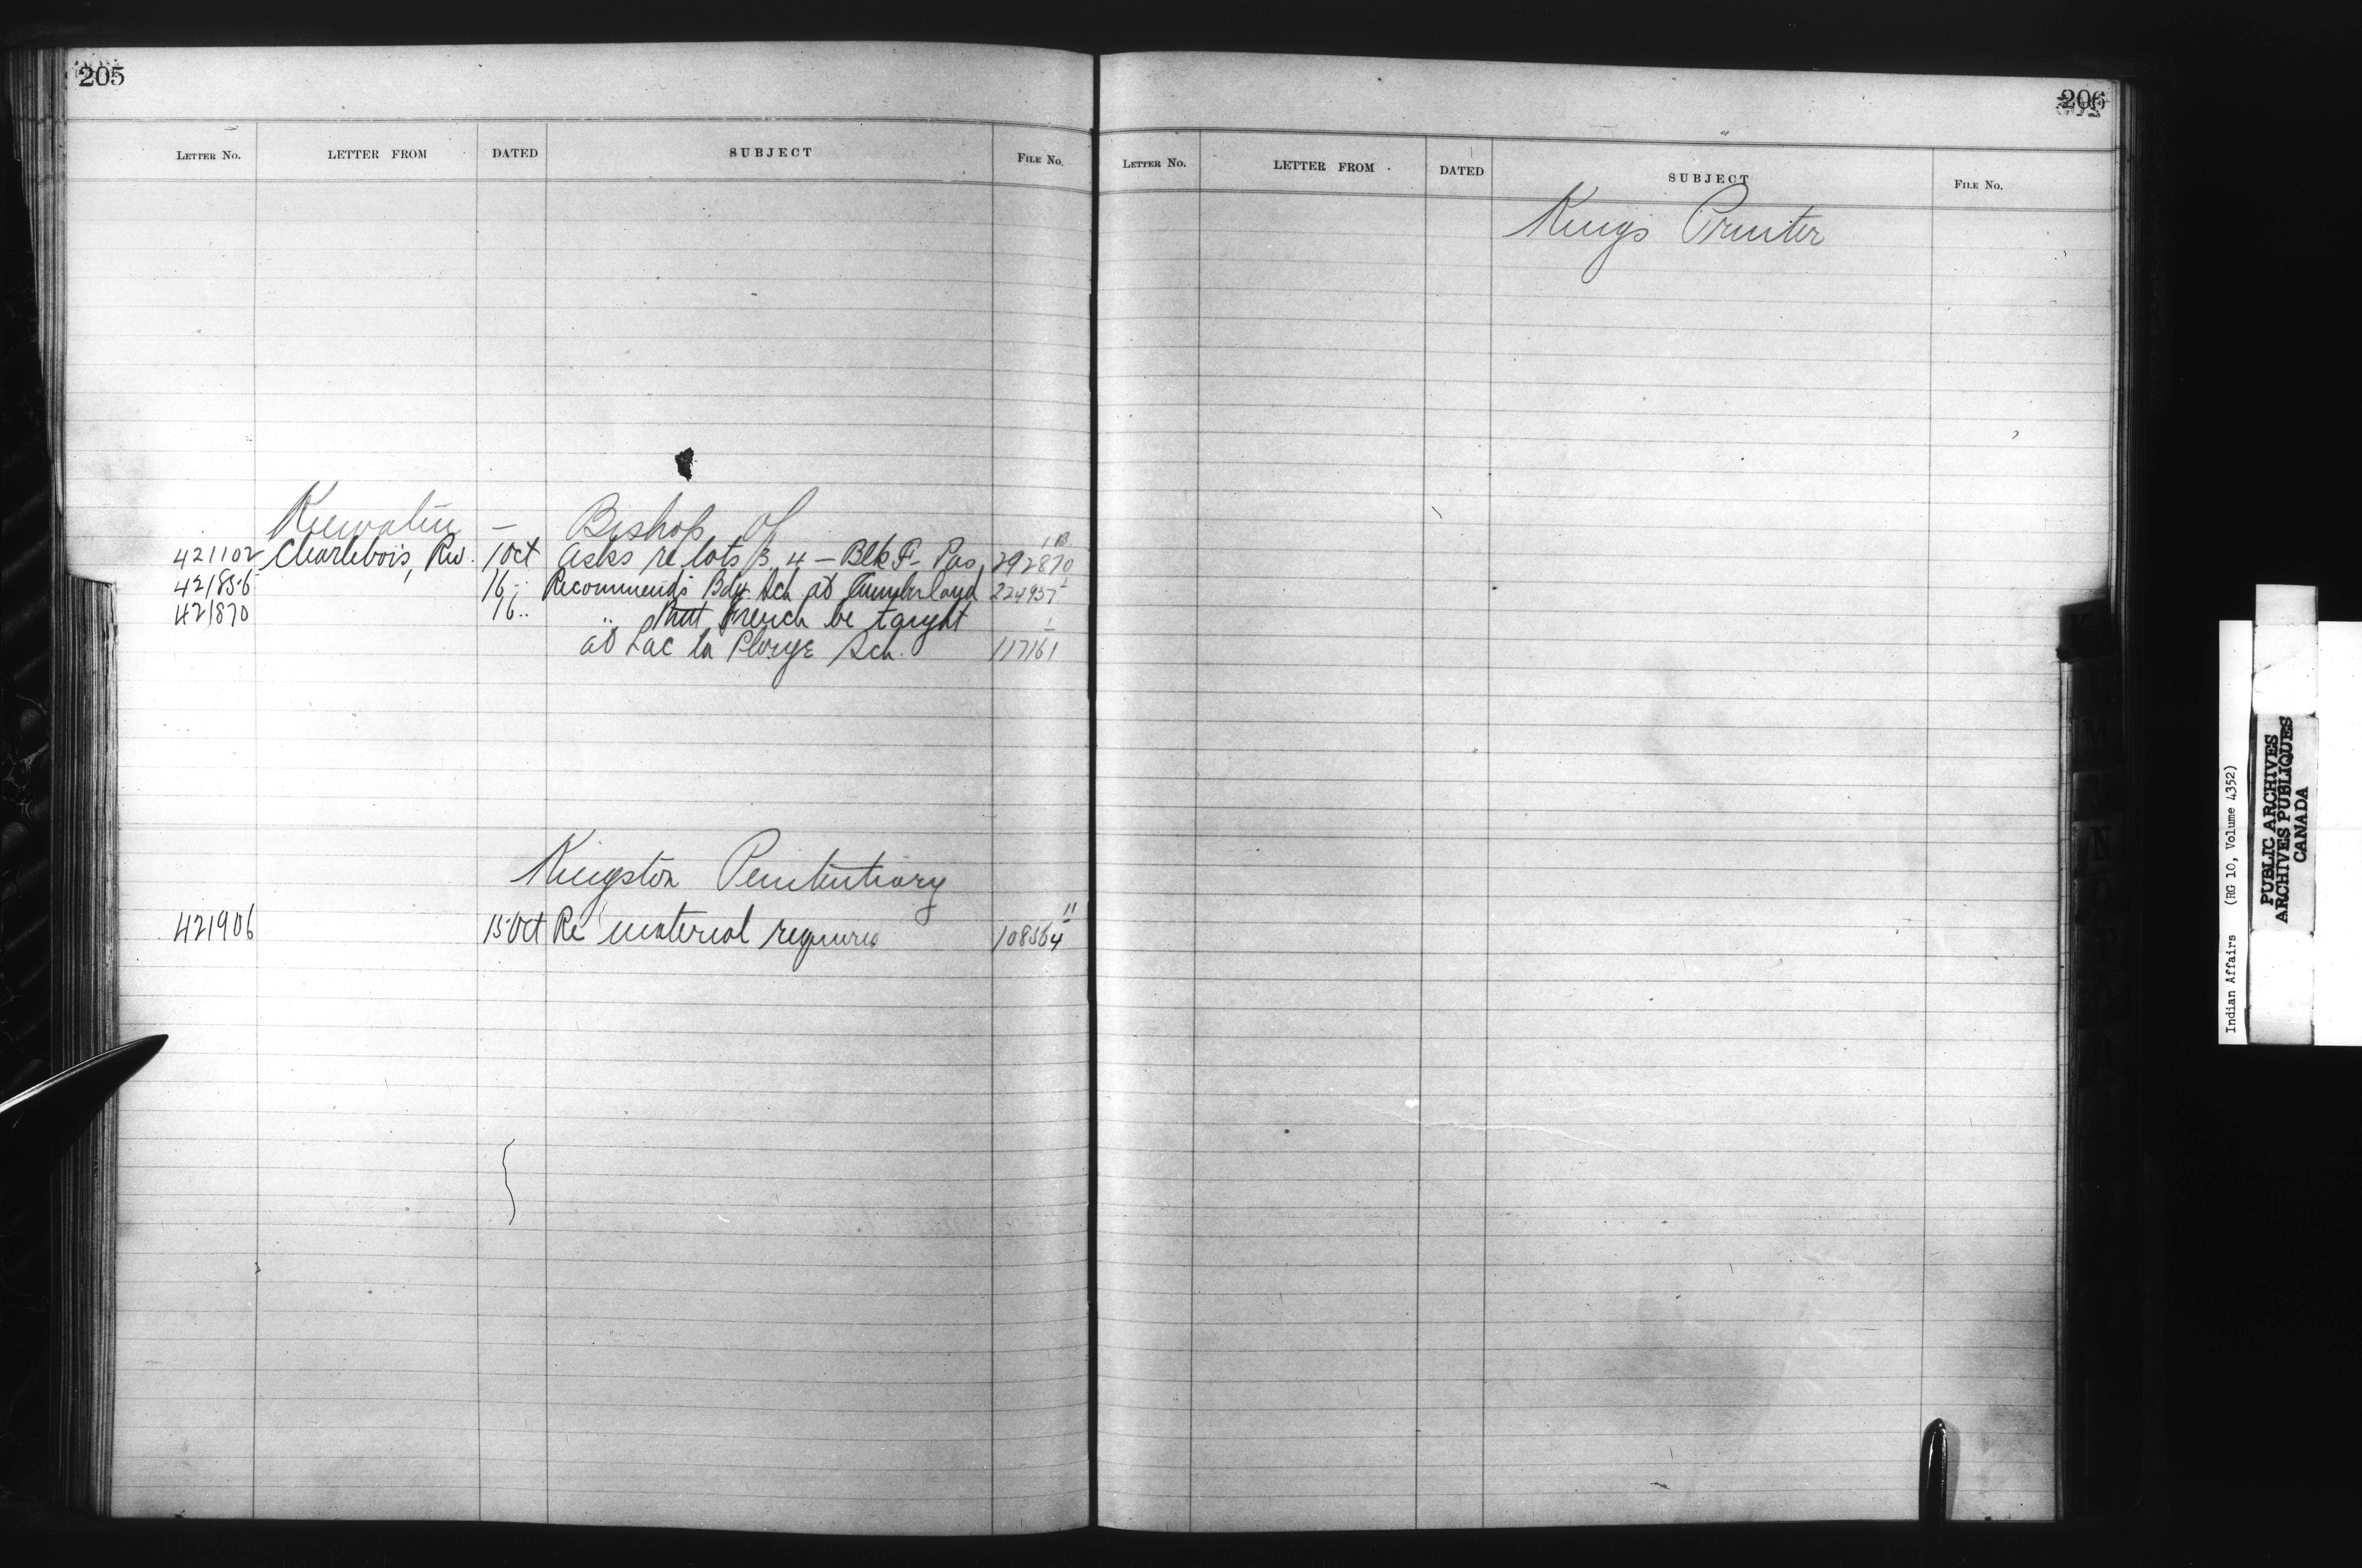 205
LETTER NO. LETTER FROM DATED SUBJECT FILE No.
Keewatin — Bishop of
421102 Charlebois, Rev. 1 Oct Asks re lots 3, 4 – Blk F – Pas 292870
421856 16 " Recommends Bdg. Sch at Cumberland 224937
421870 16 " " that French be taught
at Lac la Plonge Sch. 117161
Kingston Penitentiary
421906 15 Oct Re material required 108564
206
LETTER NO. LETTER FROM DATED SUBJECT FILE No.
Kings Printer
Indian Affairs (RG 10, Volume 4352)
PUBLIC ARCHIVES
ARCHIVES PUBLIQUES
CANADA